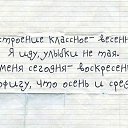 строение классное - весенн
Я иду, улыбки не тая.
меня сегодня - воскресень
офигу, что осень и сред